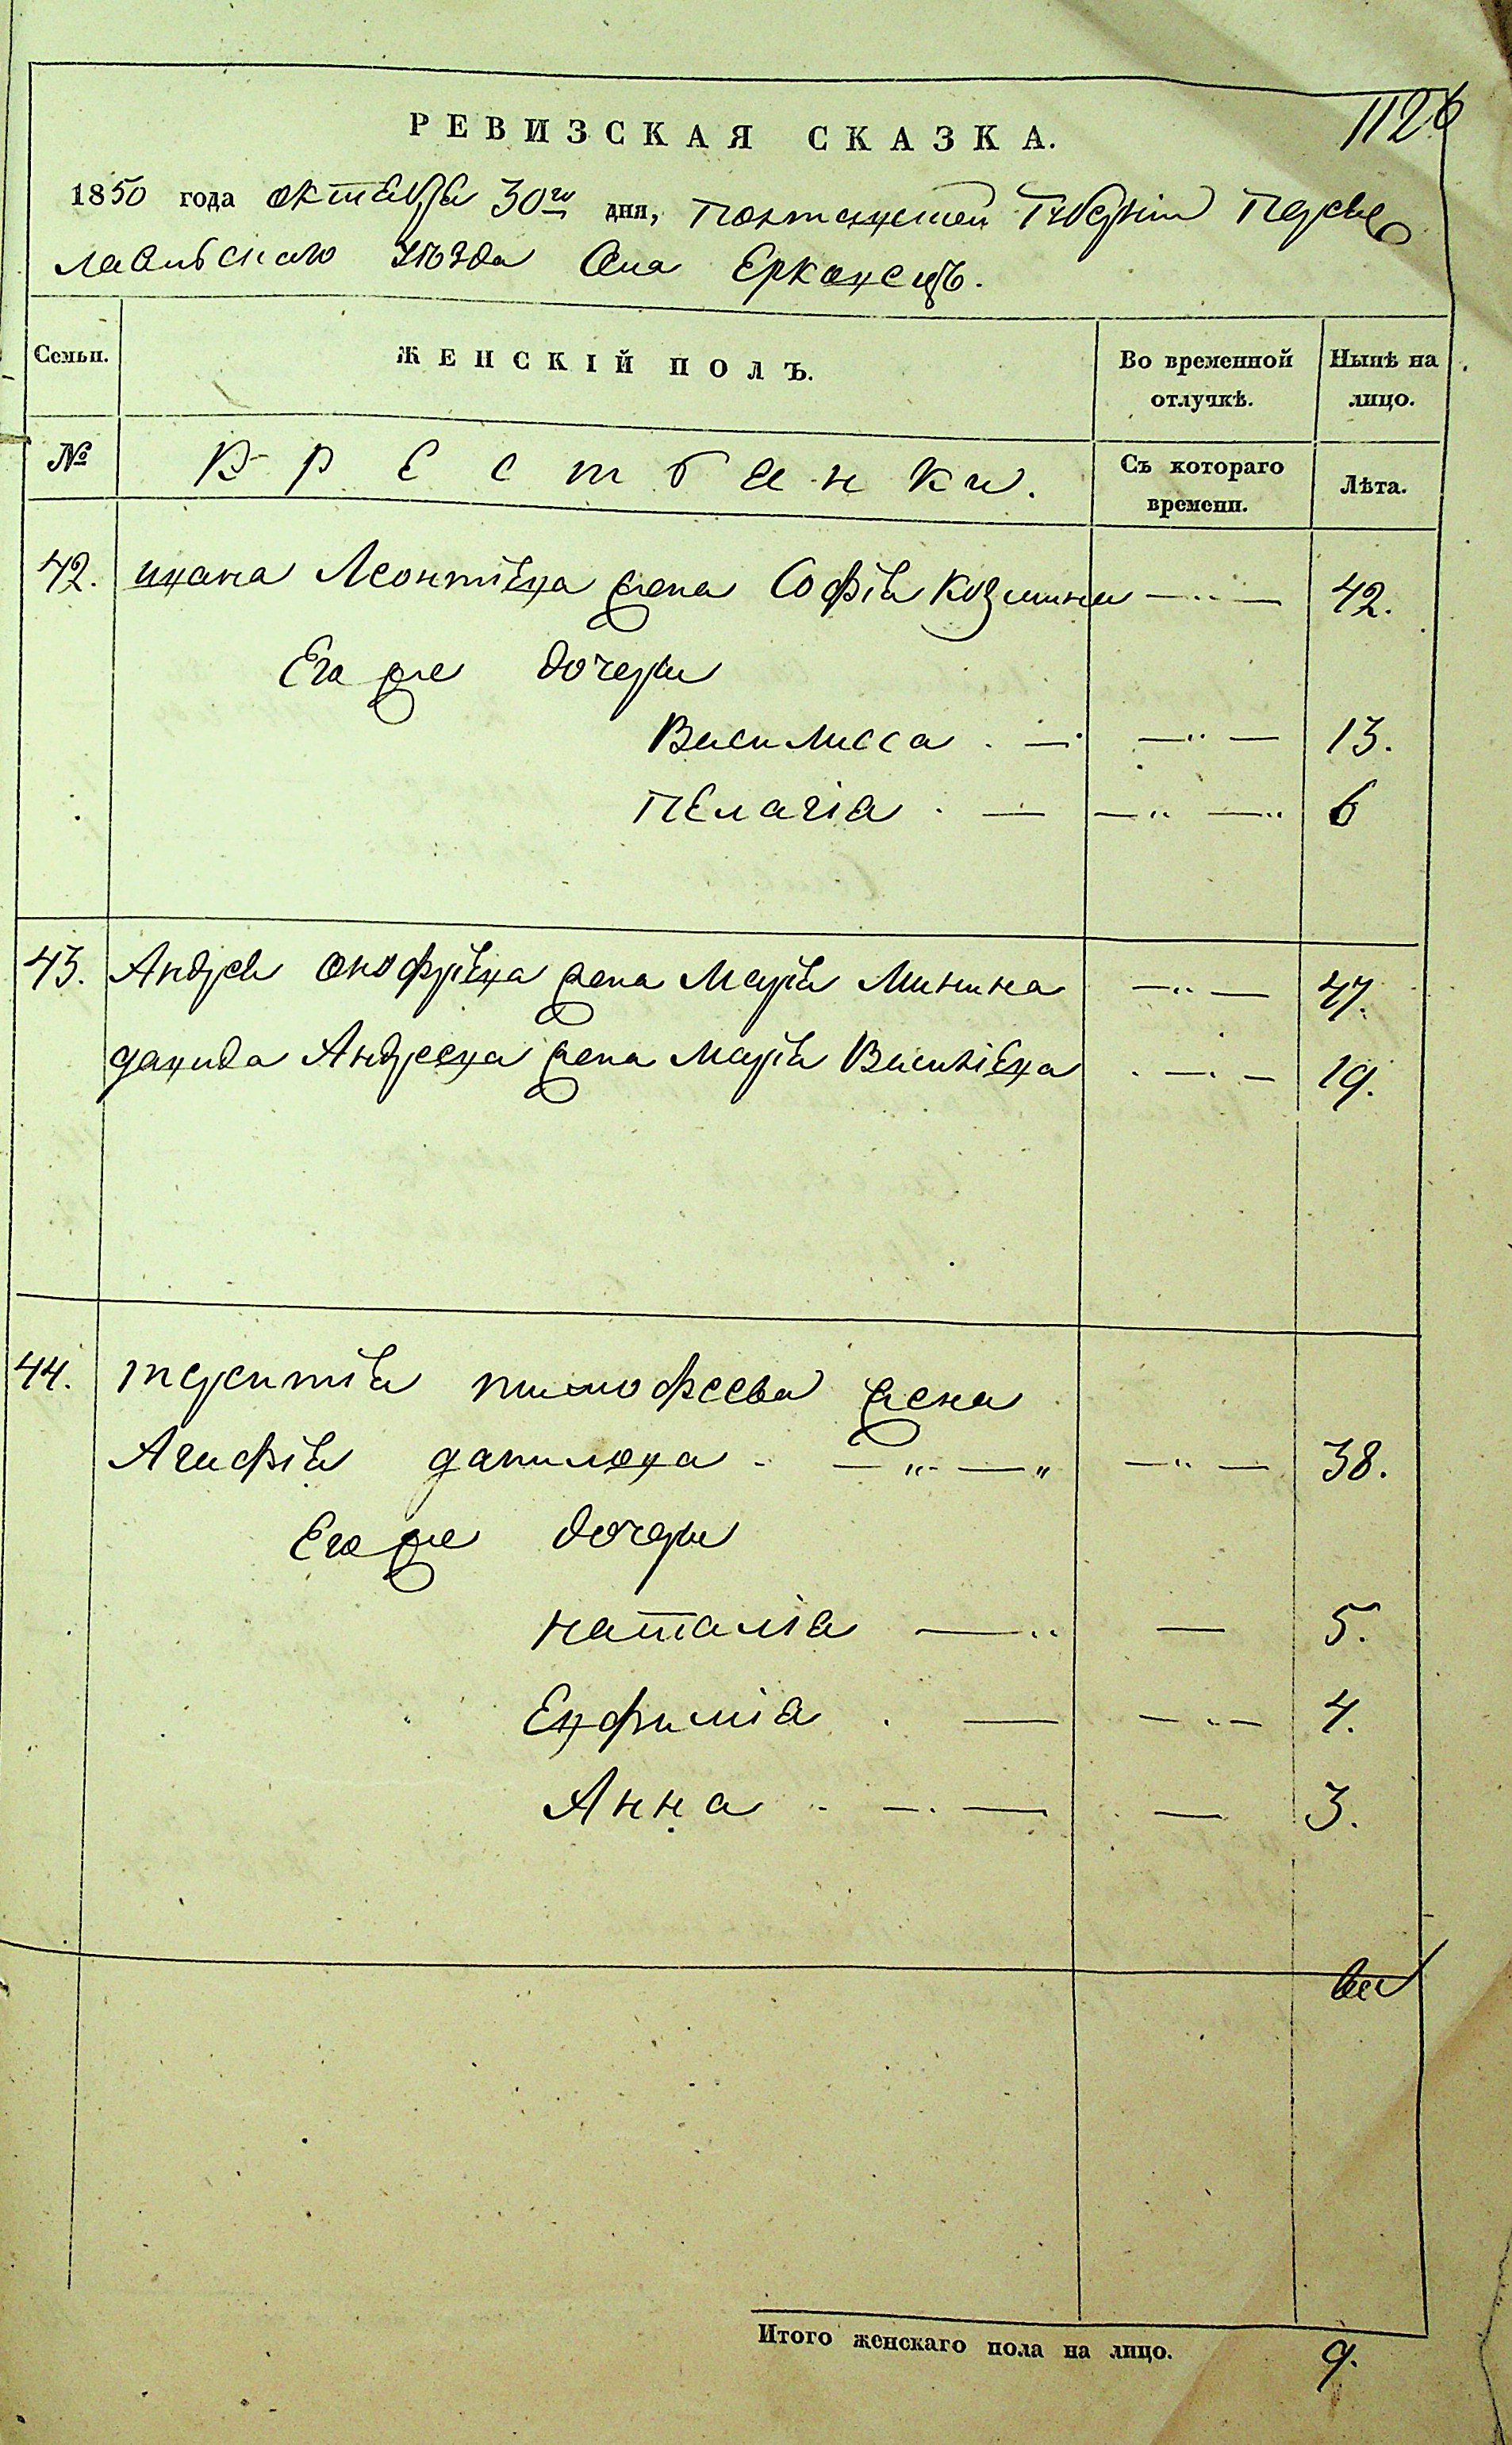 112
РЕВИЗСКАЯ СКАЗКА.
1850 года октября 30го дня, Полтавской Губерніи Переяс
лавльскаго Уѣзда Села Ерковецъ.
Семьи.
ЖЕНСКІЙ ПОЛЪ.
Во временной отлучкѣ.
Нынѣ на лицо.
№
Крестьянки.
Съ котораго времени.
Лѣта.
42. Ивана Леонтіева жена Софія Козмина —··— 42.
Его же дочери
Василисса . —· —··— 13.
Пелагія . — —·· —·· 6
43. Андрея Онофріева жена Марія Минина —··— 47.
Давида Андреева жена Марія Василіева . —·— 19.
44. Терентія Тимофеева жена
Агафія Данилова - —„—„ —··— 38.
Его же дочери
Наталія —·· — 5.
Евфимія . — —·— 4.
Анна . —·— — 3.
Итого женскаго пола на лицо. 9.